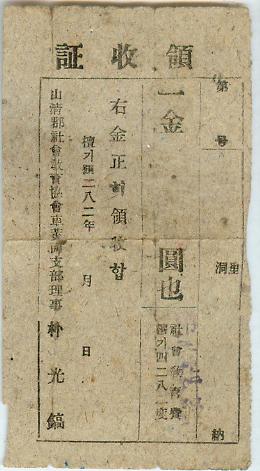 領收証
第 号
里
洞 納
一金 圓也
社會敎育費
檀기四二八一度
右金正히領收함
檀기四二八二年 月 日
山淸郡社會敎育協會車黃面支部理事 朴光鎬